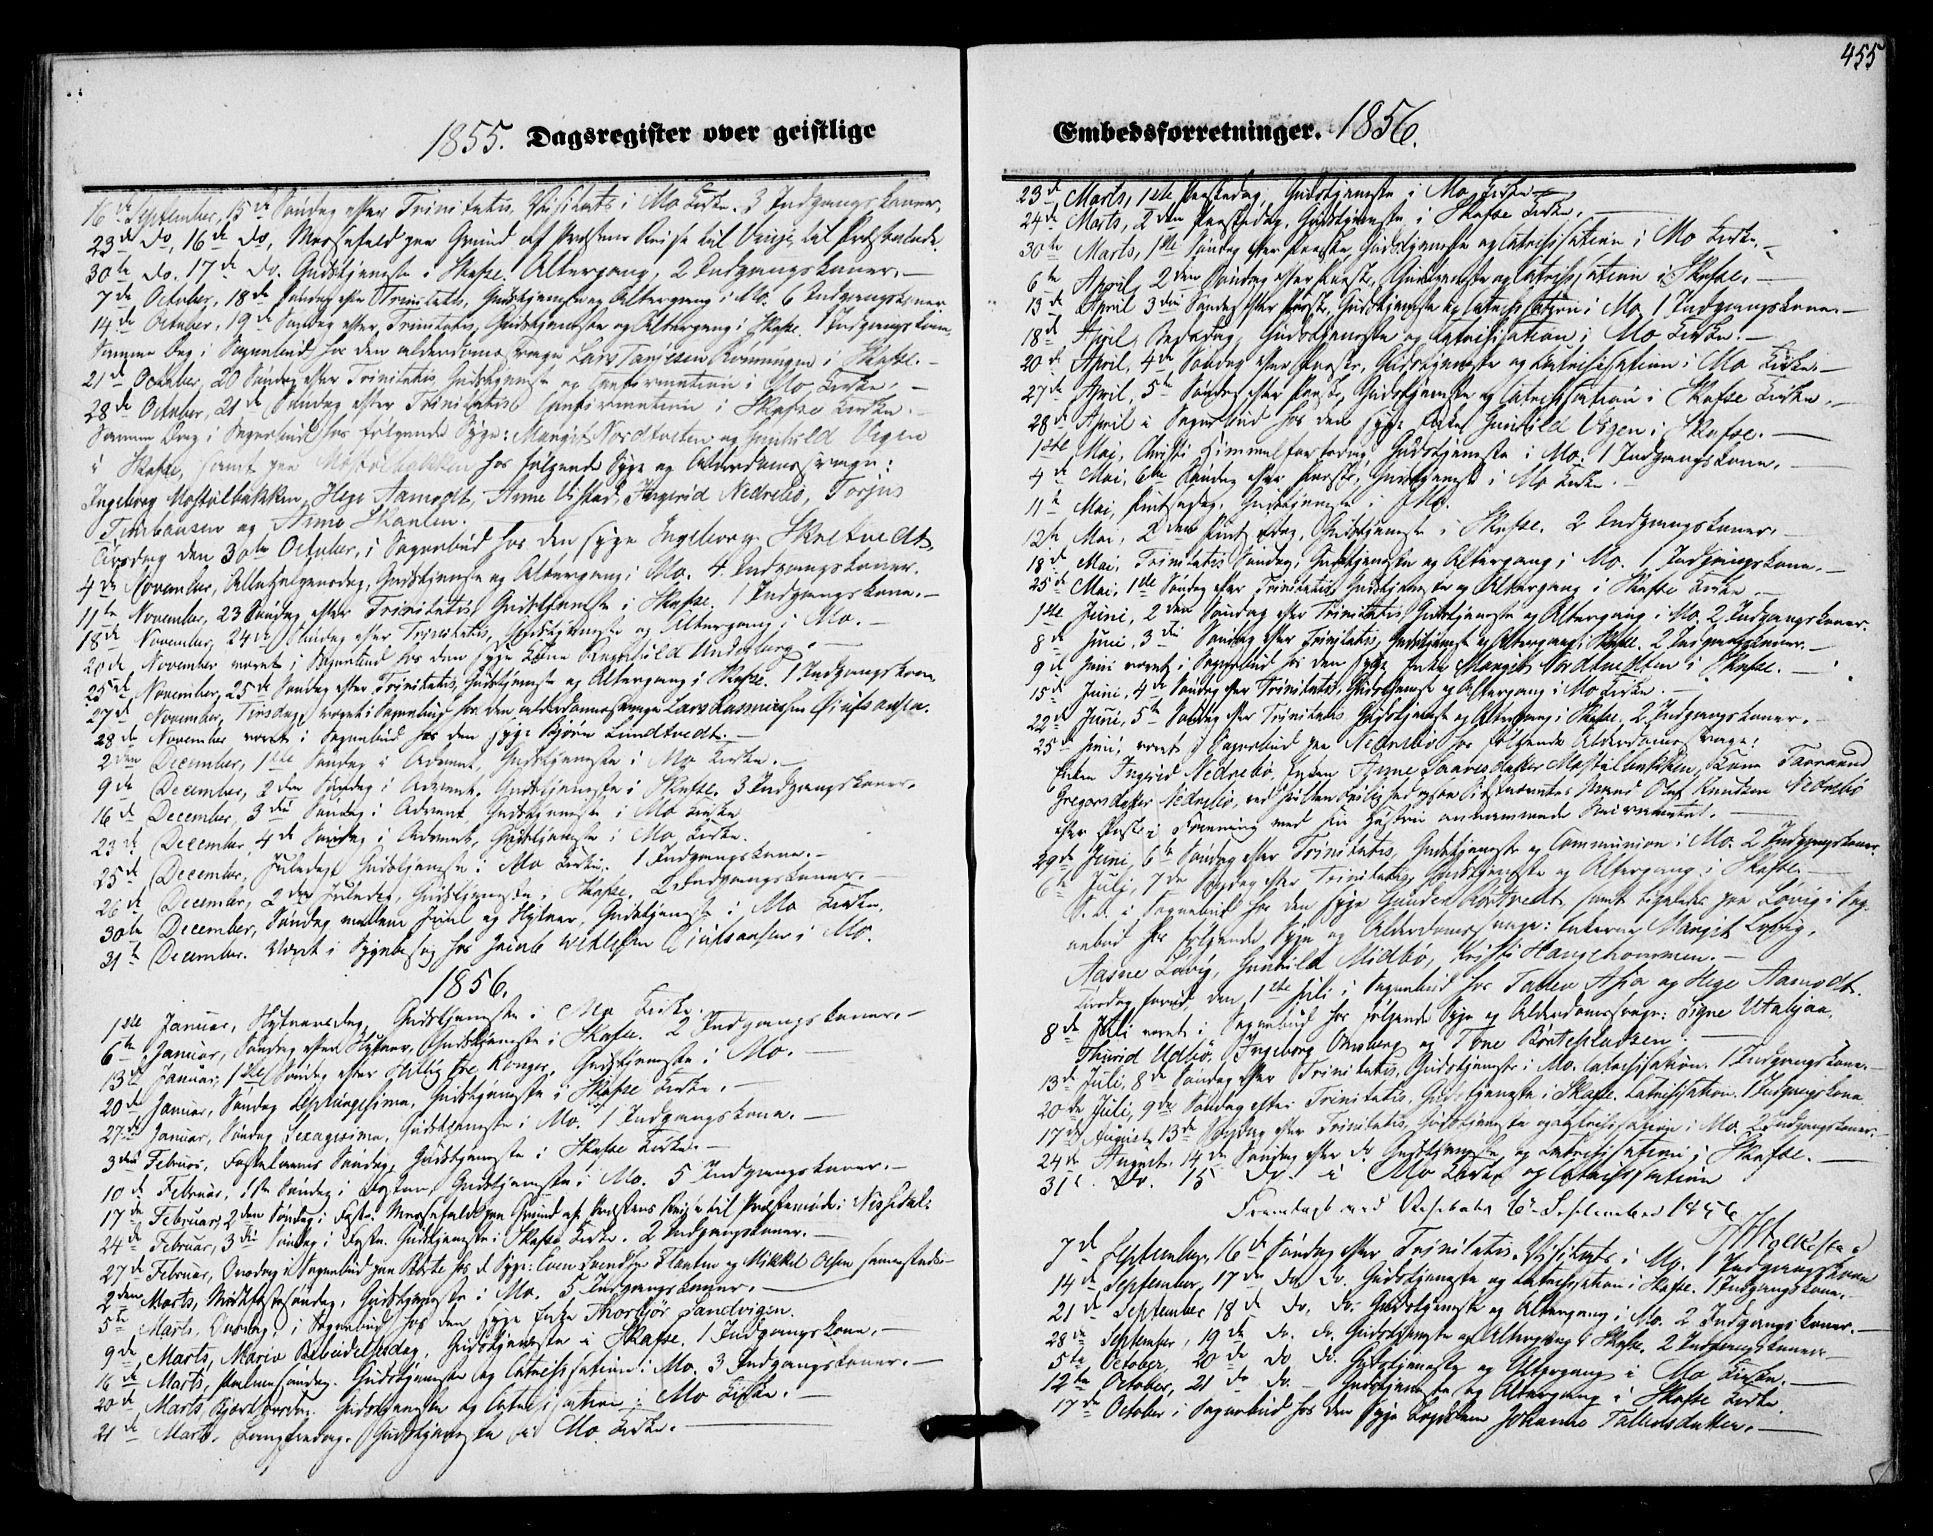 455
1855. Dagsregister over geistlige
16de September, 15de Søndag efter Trinitatis, Visitats i Mo Kirke. 3 Indgangskoner.
23de Do, 16de Do, Messefald paa Grund af Præstens Reise til Vinje
30te Do. 17de Do. Gudstjeneste i Skafse. Altergang, 2 Indgangskoner. —
7de October, 18de Søndag efter Trinitatis, Gudstjeneste og Altergang i Mo. 6 Indgangskoner
14de October, 19de Søndag efter Trinitatis, Gudstjeneste og Altergang i Skafse. 1 Indgangskone
Samme Dag i Sognebud hos den alderdomssvage Lars Rönningen i Skafse. —
21de October, 20 Søndag efter Trinitatis Gudstjeneste og Confirmation i Mo Kirke. —
28de October, 21de Søndag efter Trinitatis Confirmation i Skafse Kirke. —
Samme Dag i Sognebud hos følgende Syge: Margit Nordtveten og Gunhild
i Skafse, samt paa Mostølbakken hos følgende Syge og Alderdomssvage:
Ingeborg Mostølbakken, Hege Aamodt, Anne Ingerid Nedrebö, Torjus
og Anne Skanten.
Tirsdag den 30te October, i Sognebud hos den syge Ingeborg Skretvedt.
4de November, Allehelgensdag, Gudstjeneste og Altergang i Mo. 4 Indgangskoner.
11te November, 23 Søndag efter Trinitatis Gudstjeneste i Skafse. 1 Indgangskone. —
18de November, 24de Søndag efter Trinitatis, Gudstjeneste og Altergang i Mo. —
20de November været i Sognebud hos den syge Kone
25de November, 25de Søndag efter Trinitatis, Gudstjeneste og Altergang i Skafse. 1 Indgangskone
27de November, Tirsdag, været i Sognebud hos den alderdomssvage Lars Rasmussen
28de November været i Sognebud hos den syge Björn Lundtvedt. —
2den December, 1ste Søndag i Advent, Gudstjeneste i Mo Kirke. —
9de December, 2den Søndag i Advent, Gudstjeneste i Skafse. 3 Indgangskoner.
16de December, 3die Søndag i Advent, Gudstjeneste i Mo Kirke
23de December, 4de Søndag i Advent, Gudstjeneste i Mo Kirke.
25de December, Juledag Gudstjeneste i Mo Kirke. 1 Indgangskone. —
26de December, 2den Juledag, Gudstjeneste i Skafse, 2 Indgangskoner. —
30te December, Søndag mellem Juul og Nytaar, Gudstjeneste i Mo Kirke.
31te December. Været i Sygebesøg hos Jacob i Mo.
1856.
1ste Januar, Nytaarsdag, Gudstjeneste i Mo Kirke.
6te Januar, Søndag efter Nytaar, Gudstjeneste i Skafse. 2 Indgangskoner. —
13de Januar, 1ste Søndag efter Hellig tre Konger, Gudstjeneste i Mo. —
20de Januar, Søndag Septuagesima, Gudstjeneste i Skafse Kirke. —
27de Januar, Søndag Sexagesima, Gudstjeneste i Mo. 1 Indgangskone. —
3die Februar, Fastelavns Søndag, Gudstjeneste i Skafse Kirke. —
10de Februar, 1ste Søndag i Fasten, Gudstjeneste i Mo. 5 Indgangskoner. —
17de Februar, 2den Søndag i Faste. Messefald paa Grund af Præstens Reise til Præstemøde i Nissedal.
24de Februar, 3die Søndag i Faste. Gudstjeneste i Skafse Kirke. 2 Indgangskoner. —
27de Februar, Onsdag i Sognebud paa Börte hos d Syge: Even Evendsen og Mikkel Olsen sammesteds —
2den Marts, Midfastesøndag, Gudstjeneste i Mo. 5 Indgangskoner. —
5te Marts, Onsdag, i Sognebud hos den syge Enke Thorbjör Sandvigen.
9de Marts, Mariæ Bebudelsesdag, Gudstjeneste i Skafse. 1 Indgangskone. —
16de Marts, Palmesøndag. Gudstjeneste og Catechisation i Mo, 3 Indgangskoner. —
20de Marts, Skjærtorsdag. Gudstjeneste og Catechisation i Mo Kirke. —
21de Marts. Langfredag. Gudstjeneste i Mo Kirke.
Embedsforretninger. 1856.
23de Marts, 1ste Paaskedag, Gudstjeneste i Mo Kirke. —
24de Marts, 2den Paaskedag, Gudstjeneste i Skafse Kirke. —
30te Marts, 1ste Søndag efter Paaske, Gudstjeneste og Catechisation i Mo Kirke. —
6te April, 2den Søndag efter Paaske, Gudstjeneste og Catechisation i Skafse. —
13de April 3die Søndag efter Paaske, Gudstjeneste og Catechisation i Mo 1 Indgangskone. —
18de April, Bededag, Gudstjeneste og Catechisation i Mo Kirke. —
20de April, 4de Søndag efter Paaske, Gudstjeneste og Catechisation i Mo Kirke. —
27de April, 5te Søndag efter Paaske, Gudstjeneste og Catechisation i Skafse Kirke. —
28de April i Sognebud hos den syge Enke Gunhild i Skafse. —
1ste Mai, Christi Himmelfartsdag, Gudstjeneste i Mo. 1 Indgangskone. —
4de Mai, 6te Søndag efter Paaske, Gudstjeneste i Mo Kirke. —
11te Mai, Pintsedag. Gudstjeneste i Mo.
12te Mai, 2den Pintsedag, Gudstjeneste i Skafse. 2 Indgangskoner. —
18de Mai, Trinitatis Søndag, Gudstjeneste og Altergang i Mo. 1 Indgangskone. —
25de Mai, 1ste Søndag efter Trinitatis, Gudstjeneste og Altergang i Skafse Kirke —
1ste Juni, 2den Søndag efter Trinitatis, Gudstjeneste og Altergang i Mo. 2 Indgangskoner.
8de Juni, 3die Søndag efter Trinitatis, Gudstjeneste og Altergang i Skafse. 2 Indgangskoner. —
9de Juni været i Sognebud hos den syge Enke Margit Nordtveten i Skafse. —
15de Juni, 4de Søndag efter Trinitatis, Gudstjeneste og Altergang i Mo Kirke. —
22de Juni, 5te Søndag efter Trinitatis Gudstjeneste og Altergang i Skafse. 2 Indgangskoner. —
25de Juni, været i Sognebud paa Nedrebö hos følgende Alderdomssvage:
Enken Ingerid Nedrebö, Enken Anne Saavesdatter Mostølbakken, Kone
Gregarsdatter Nedrebö, ved hvilken Leilighed ogsaa Sidstnævntes Mand Olaf Knudsen Nedrebö
efter med sin Hustru annammede Sacramentet. —
29de Juni, 6te Søndag efter Trinitatis, Gudstjeneste og Communion i Mo. 2 Indgangskoner.
6te Juli, 7de Søndag efter Trinitatis, Gudstjeneste og Altergang i Skafse. —
S. D. i Sognebud hos den syge Gunder samt ligeledes paa Lovig i Sog-
nebud hos følgende Syge og Alderdomssvage: Enkerne Margit Lovig,
Aasne Lovig, Gunhild Midbö, Kristi Haugehommen. —
Tirsdag forud, den 1ste Juli i Sognebud hos Tallev og Hege Aamodt.
8de Juli været i Sognebud hos følgende Syge og Alderdomssvage: Signe
Thurid Udbö, Ingeborg Omsberg og Tone Börtepladsen. —
13de Juli, 8de Søndag efter Trinitatis, Gudstjeneste i Mo. Catechisation. 1 Indgangskone. —
20de Juli, 9de Søndag efter Trinitatis, Gudstjeneste i Skafse. Catechisation. 1 Indgangskone
17de August, 13de Søndag efter Trinitatis, Gudstjeneste og Catechisation i Mo. 2 Indgangskoner. —
24de August. 14de Søndag efter do Gudstjeneste og Catechisation i Skafse. —
31te Do. 15 do. i Mo Kirke og Catechisation
Fremlagt ved Visitats 6te September 1856
7de September, 16de Søndag efter Trinitatis. Visitats i Mo. 1 Indgangskone
14de September, 17de do. do. Gudstjeneste og Catechisation i Skafse. 1 Indgangskone. —
21de September 18de do. do. Gudstjeneste og Altergang i Mo. 2 Indgangskoner. —
28de September, 19de do. do. Gudstjeneste og Altergang i Skafse. 2 Indgangskoner. —
5te October, 20de do do. Gudstjeneste og Altergang i Mo Kirke. —
12te October, 21de do do. — Gudstjeneste og Altergang i Skafse Kirke.
17de October i Sognebud hos den syge Johanne Tallevsdatter. —